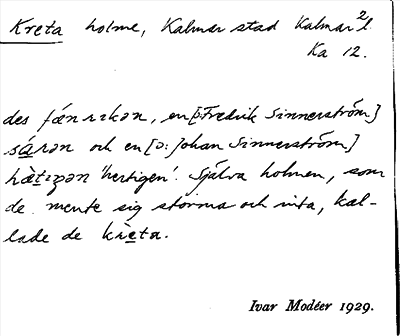 Kreta holme, Kalmar stad Kalmar 2 l.
Ka 12.
des fǽnrɩkən, en [ɔ: Fredrik Sinnerström]
sárən och en [ɔ: Johan Sinnerström]
hæ̀tɩgən 'hertigen'. Själva holmen, som
de mente sig storma och inta, kal-
lade de krèta.
Ivar Modéer 1929.